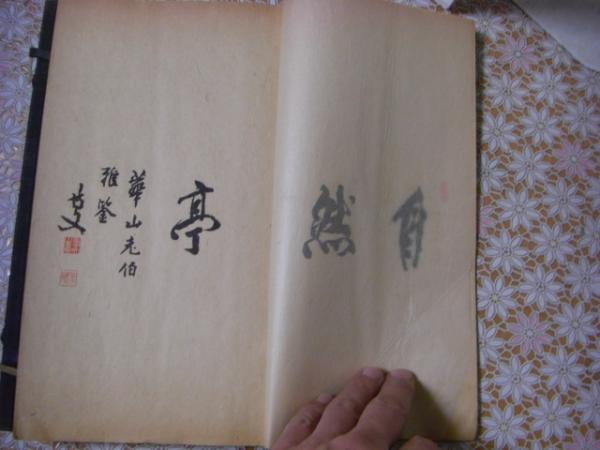 自然亭
華山老伯
雅鑒